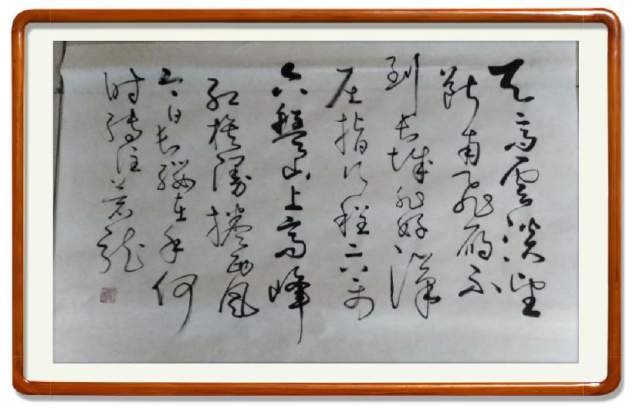 天高雲淡望
断南飛雁不
到长城非好漢
屈指行程二万
六盤山上高峰
红旗漫捲西风
今日长缨在手何
时缚住苍龙